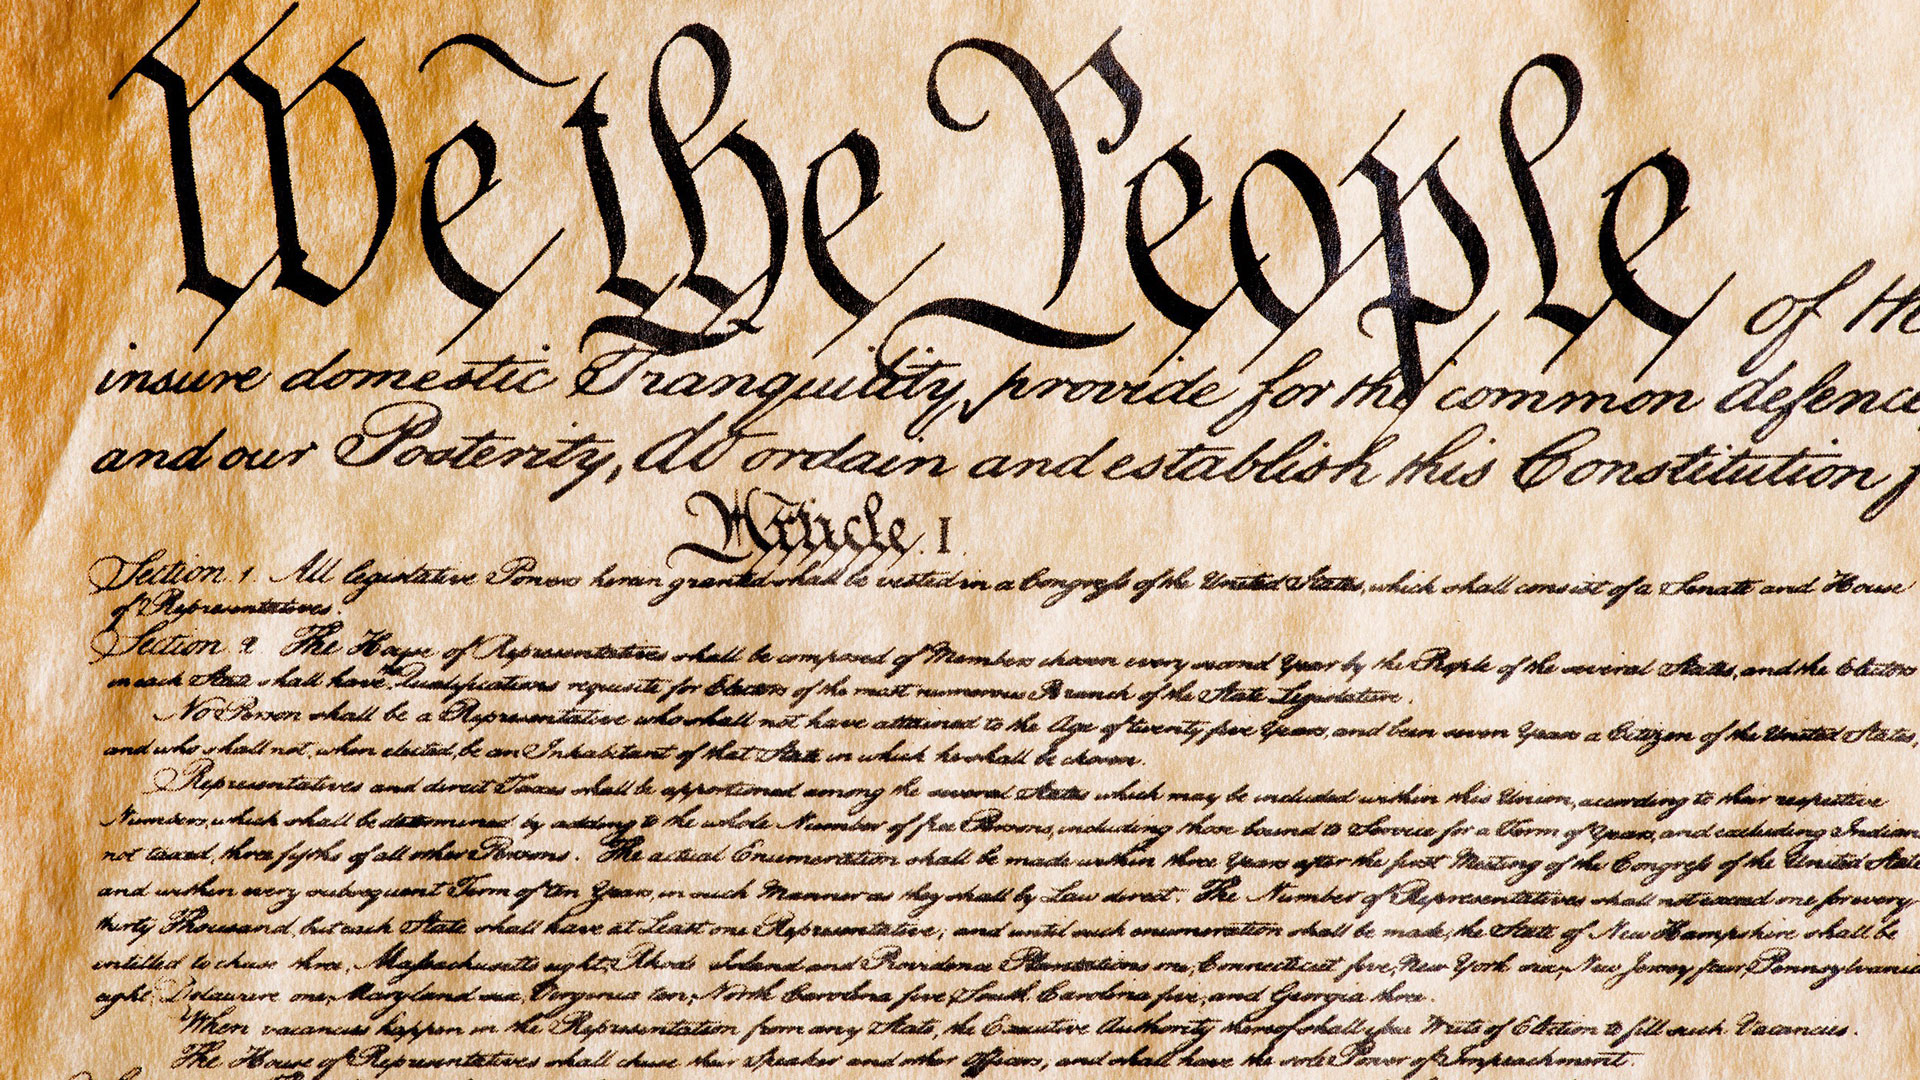 We the People of the
insure domestic Tranquility, provide for the common defence,
and our Posterity, do ordain and establish this Constitution f
Article. I.
Section. 1. All legislative Powers herein granted shall be vested in a Congress of the United States, which shall consist of a Senate and House
of Representatives.
Section. 2. The House of Representatives shall be composed of Members chosen every second Year by the People of the several States, and the Electors
in each State shall have the Qualifications requisite for Electors of the most numerous Branch of the State Legislature.
No Person shall be a Representative who shall not have attained to the Age of twenty five Years, and been seven Years a Citizen of the United States,
and who shall not, when elected, be an Inhabitant of that State in which he shall be chosen.
Representatives and direct Taxes shall be apportioned among the several States which may be included within this Union, according to their respective
Numbers, which shall be determined by adding to the whole Number of free Persons, including those bound to Service for a Term of Years, and excluding Indians
not taxed, three fifths of all other Persons. The actual Enumeration shall be made within three Years after the first Meeting of the Congress of the United States
and within every subsequent Term of ten Years, in such Manner as they shall by Law direct. The Number of Representatives shall not exceed one for every
thirty Thousand, but each State shall have at Least one Representative; and until such enumeration shall be made, the State of New Hampshire shall be
entitled to chuse three, Massachusetts eight, Rhode Island and Providence Plantations one, Connecticut five, New York six, New Jersey four, Pennsylvania
eight, Delaware one, Maryland six, Virginia ten, North Carolina five, South Carolina five, and Georgia three.
When vacancies happen in the Representation from any State, the Executive Authority thereof shall issue Writs of Election to fill such Vacancies.
The House of Representatives shall chuse their Speaker and other Officers; and shall have the sole Power of Impeachment.